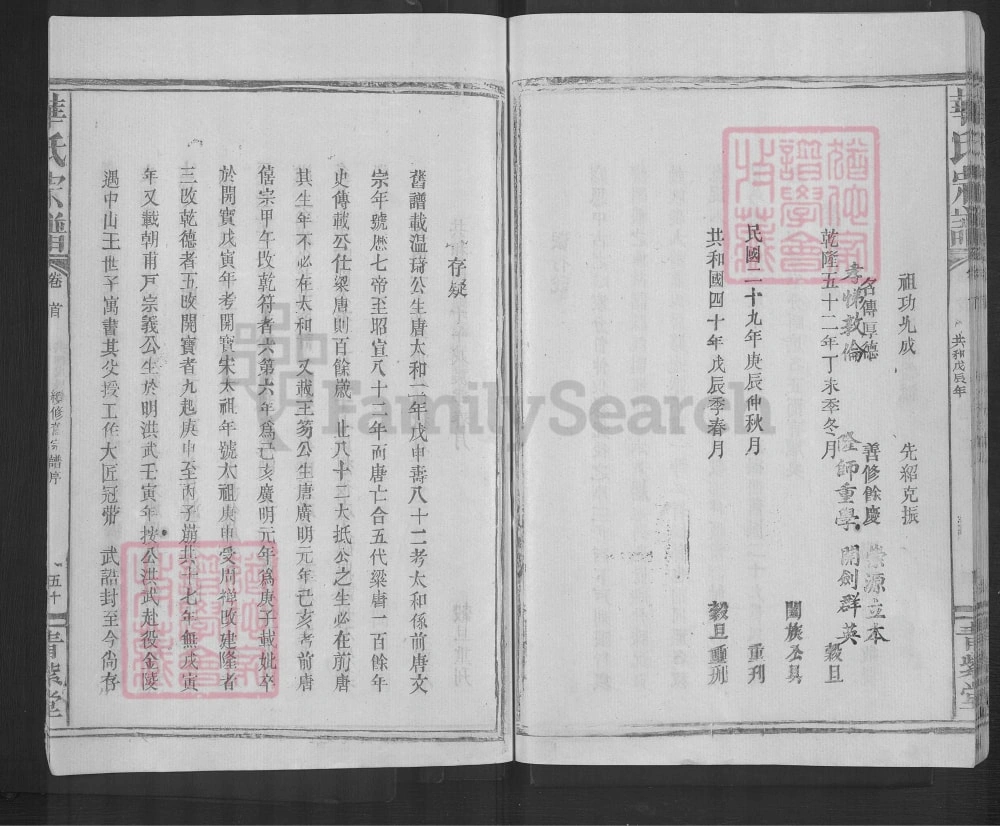 華氏宗譜
共和戊辰年
祖功光成 先紹克振
名傳厚德 善修餘慶
孝悌敦倫 隆師重學
崇源立本 開劍群英
乾隆五十二年丁未季冬月 穀旦
闔族公具
民國二十九年庚辰仲秋月 重刊
共和國四十年戊辰季春月 穀旦重刊
存疑
舊譜載温琦公生唐太和二年戊申壽八十二考太和係前唐文
宗年號歷七帝至昭宣八十三年而唐亡合五代梁唐一百餘年
史傳載公仕梁唐則百餘歲 止八十二大抵公之生必在前唐
其生年不必在太和 又載王芴公生唐廣明元年己亥考前唐
僖宗甲午改乾符者六第六年爲己亥廣明元年爲庚子載妣卒
於開寶戊寅年考開寶宋太祖年號太祖庚申受周禪改建隆者
三改乾德者五改開寶者九起庚申至丙子崩共十七年無戊寅
年又載朝甫戸宗義公生於明洪武壬寅年按公洪武赴役金陵
遇中山王世子寓書其父授工作大匠冠帶 武誥封至今尙存
華氏宗譜
卷首
續修宗譜序
五十
青藜堂
FamilySearch